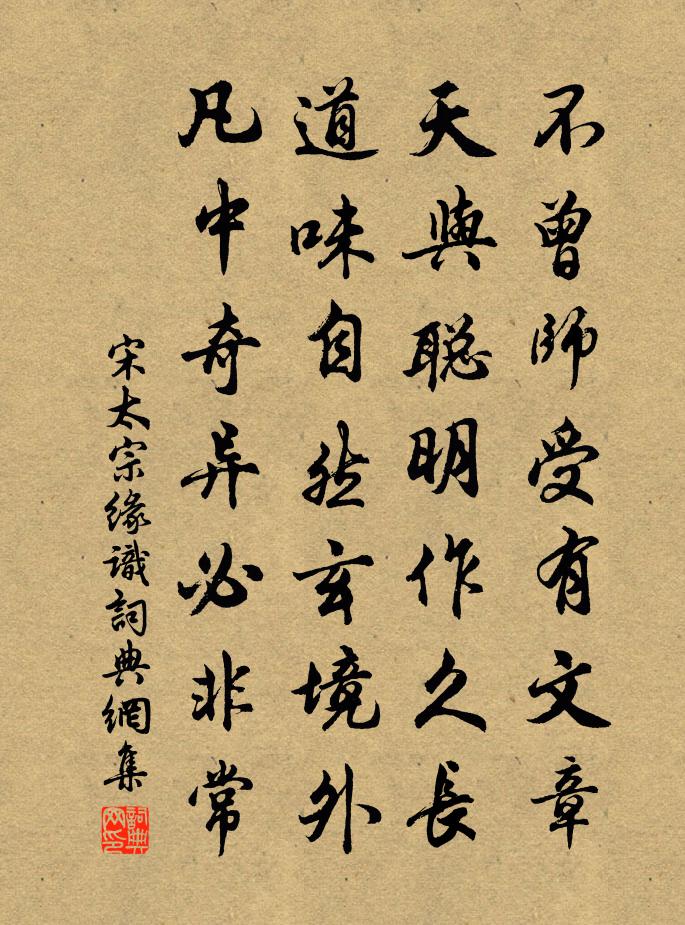 不曾師受有文章
天與聡明作久長
道味自然玄境外
凡中奇异必非常
宋太宗緣識詞典網集
詞典网印